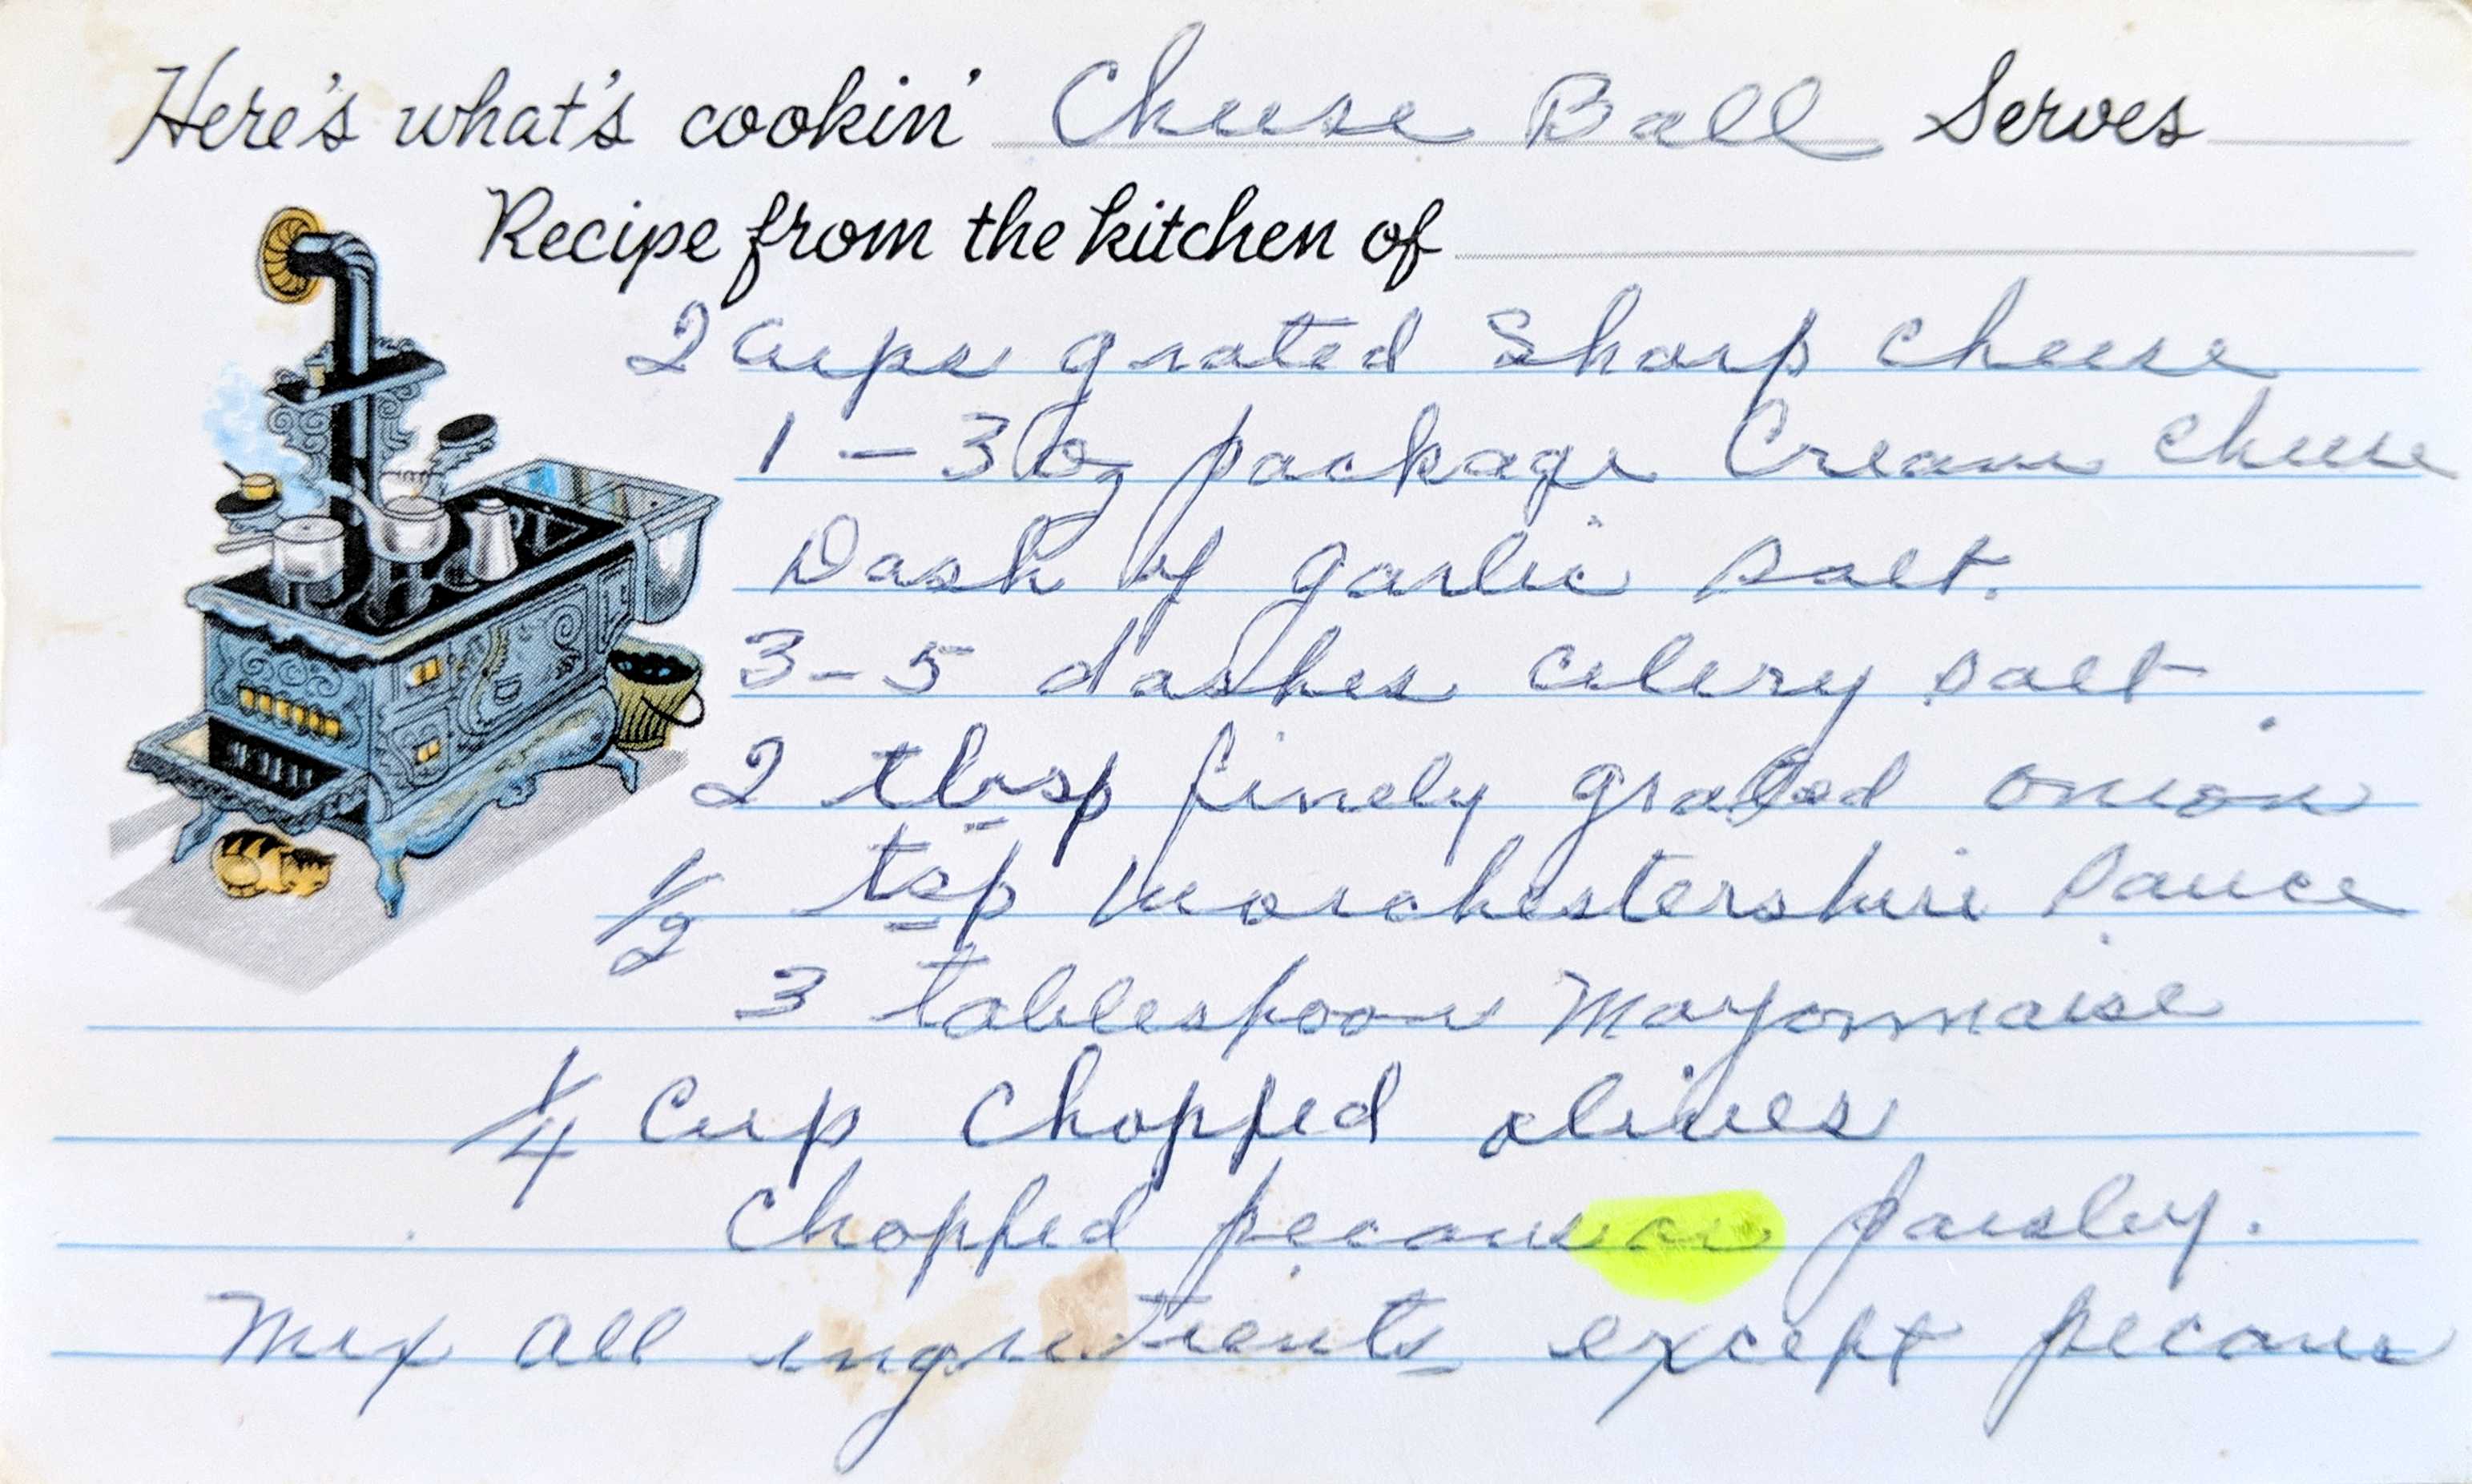 Here's what's cookin' Cheese Ball Serves
Recipe from the kitchen of
2 cups grated Sharp cheese
1 - 3 oz package Cream cheese
Dash of garlic salt.
3-5 dashes celery salt
2 tbsp finely grated onion
1/2 tsp Worchestershire Sauce
3 tablespoon Mayonnaise
1/4 Cup Chopped olives
Chopped pecans or parsley.
Mix all ingredients except pecans